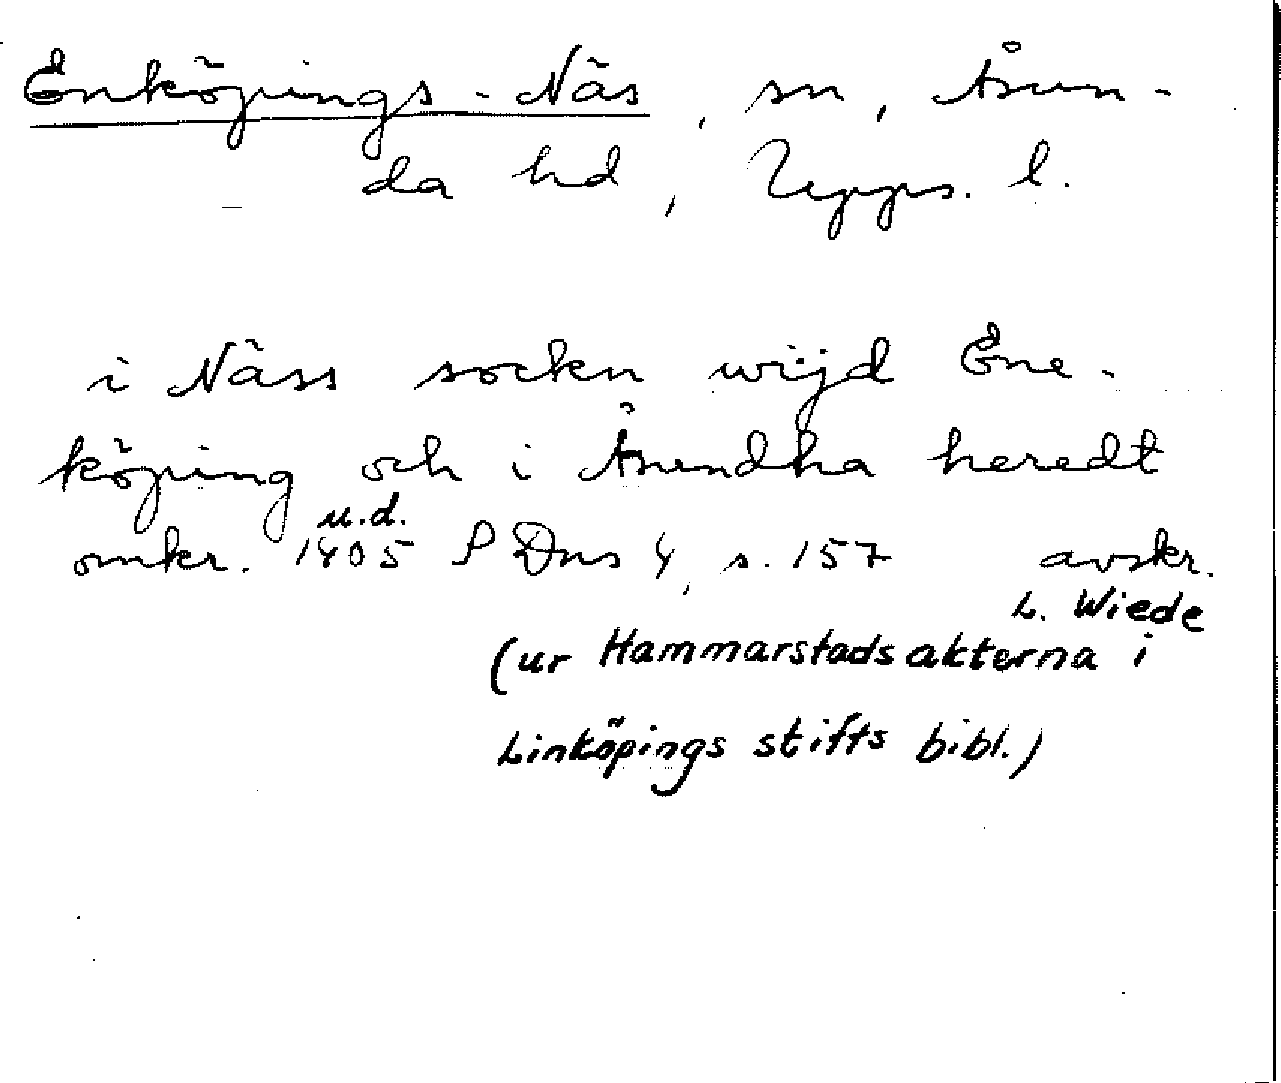 Enköpings-Näs, sn, Åsun-
da hd, Upps. l.
i Näss sockn wijd Ene-
köping och i Åsundha heredt
u.d.
omkr. 1405 SDns 4, s. 157 avskr.
L. Wiede
(ur Hammarstadsakterna i
Linköpings stifts bibl.)